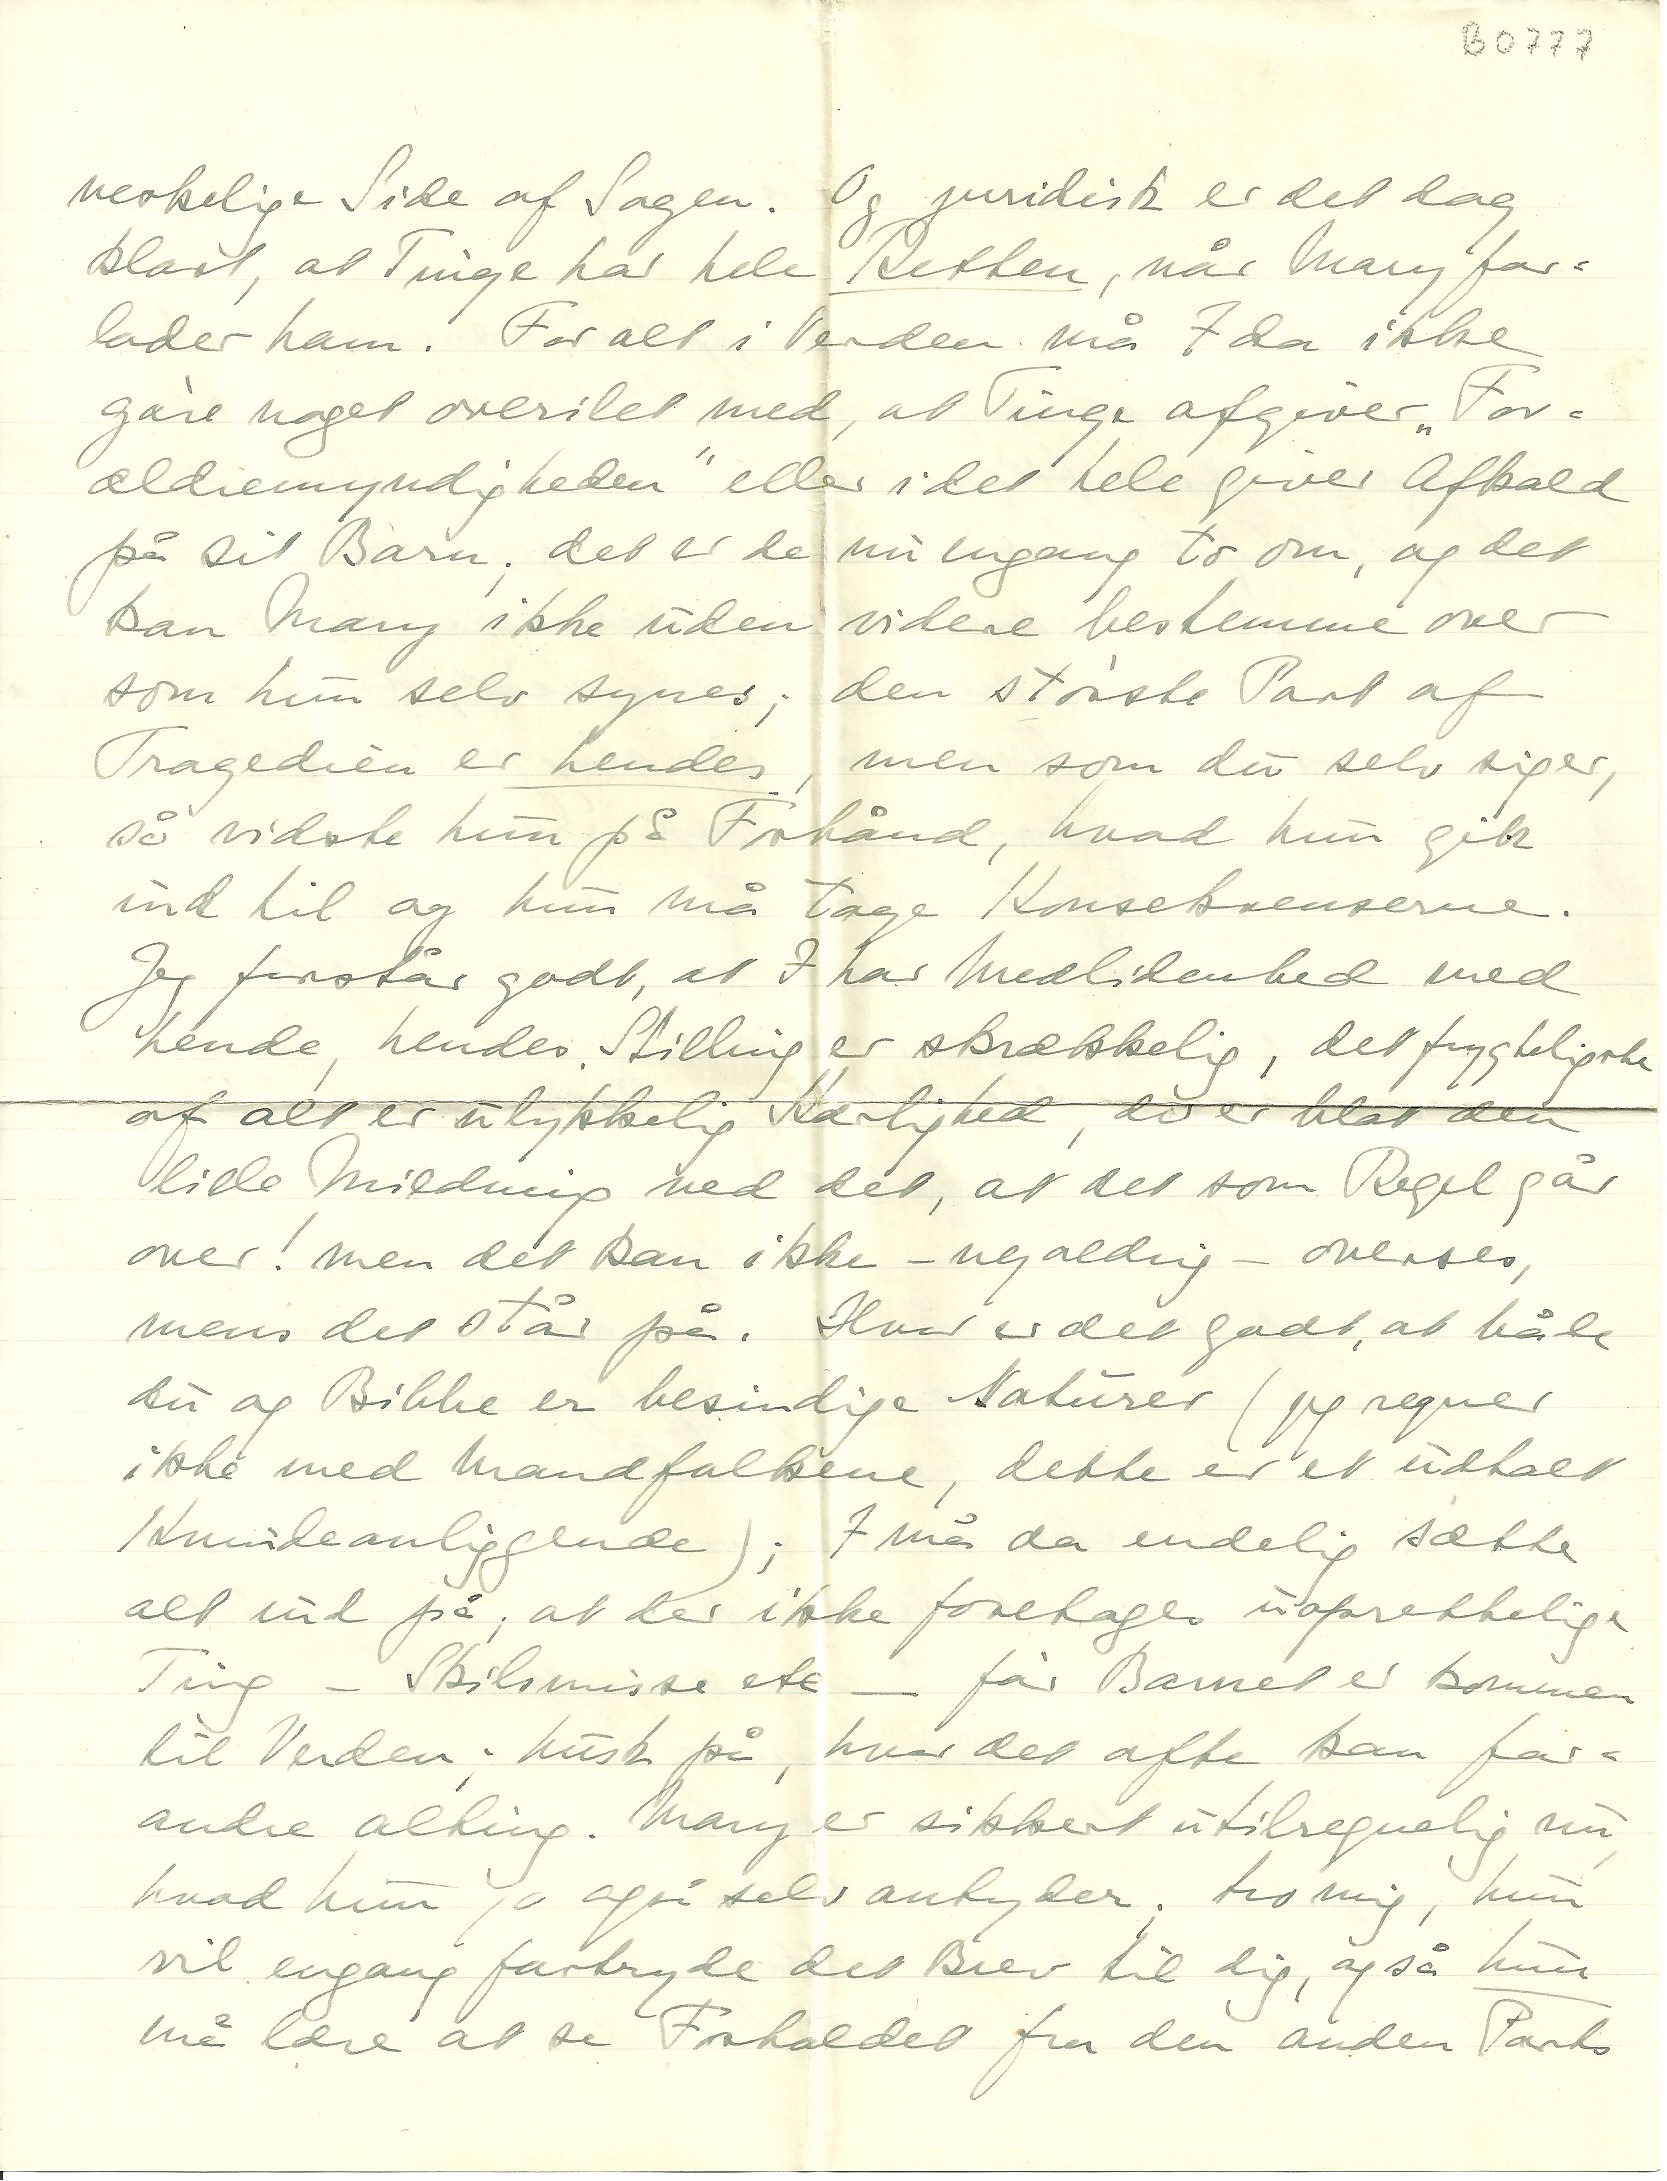 B0777
neskelige Side af Sagen. Og juridisk er det dog
klart, at Tinge har hele Retten, når Mary for=
lader ham. For alt i Verden må I da ikke
gøre noget overilet med, at Tinge afgiver „For=
ældremyndigheden" eller i det hele giver Afkald
på sit Barn; det er de nu engang to om, og det
kan Mary ikke uden videre bestemme over
som hun selv synes; den største Part af
Tragedien er hendes, men som du selv siger,
så vidste hun på Forhånd, hvad hun gik
ind til og hun må tage Konsekvenserne.
Jeg forstår godt, at I har Medlidenhed med
hende, hendes Stilling er skrækkelig, det frygteligste
af alt er ulykkelig Kærlighed, der er blot den
lille Mildning ved det, at det som Regel går
over! men det kan ikke – nyaldrig – overses,
mens det står på. Hvor er det godt, at både
du og Bibbe er besindige Naturer (jeg regner
ikke med Mandfolkene, dette er et udtalt
Kvindeanliggende); I må da endelig sætte
alt ind på, at der ikke foretages uoprettelige
Ting – Skilsmisse etc – før Barnet er kommen
til Verden; husk på, hvor det ofte kan for=
andre alting. Mary er sikkert utilregnelig nu,
hvad hun jo også selv antyder; tro mig, hun
vil engang fortryde det Brev til dig, også hun
må lære at se Forholdet fra den anden Parts